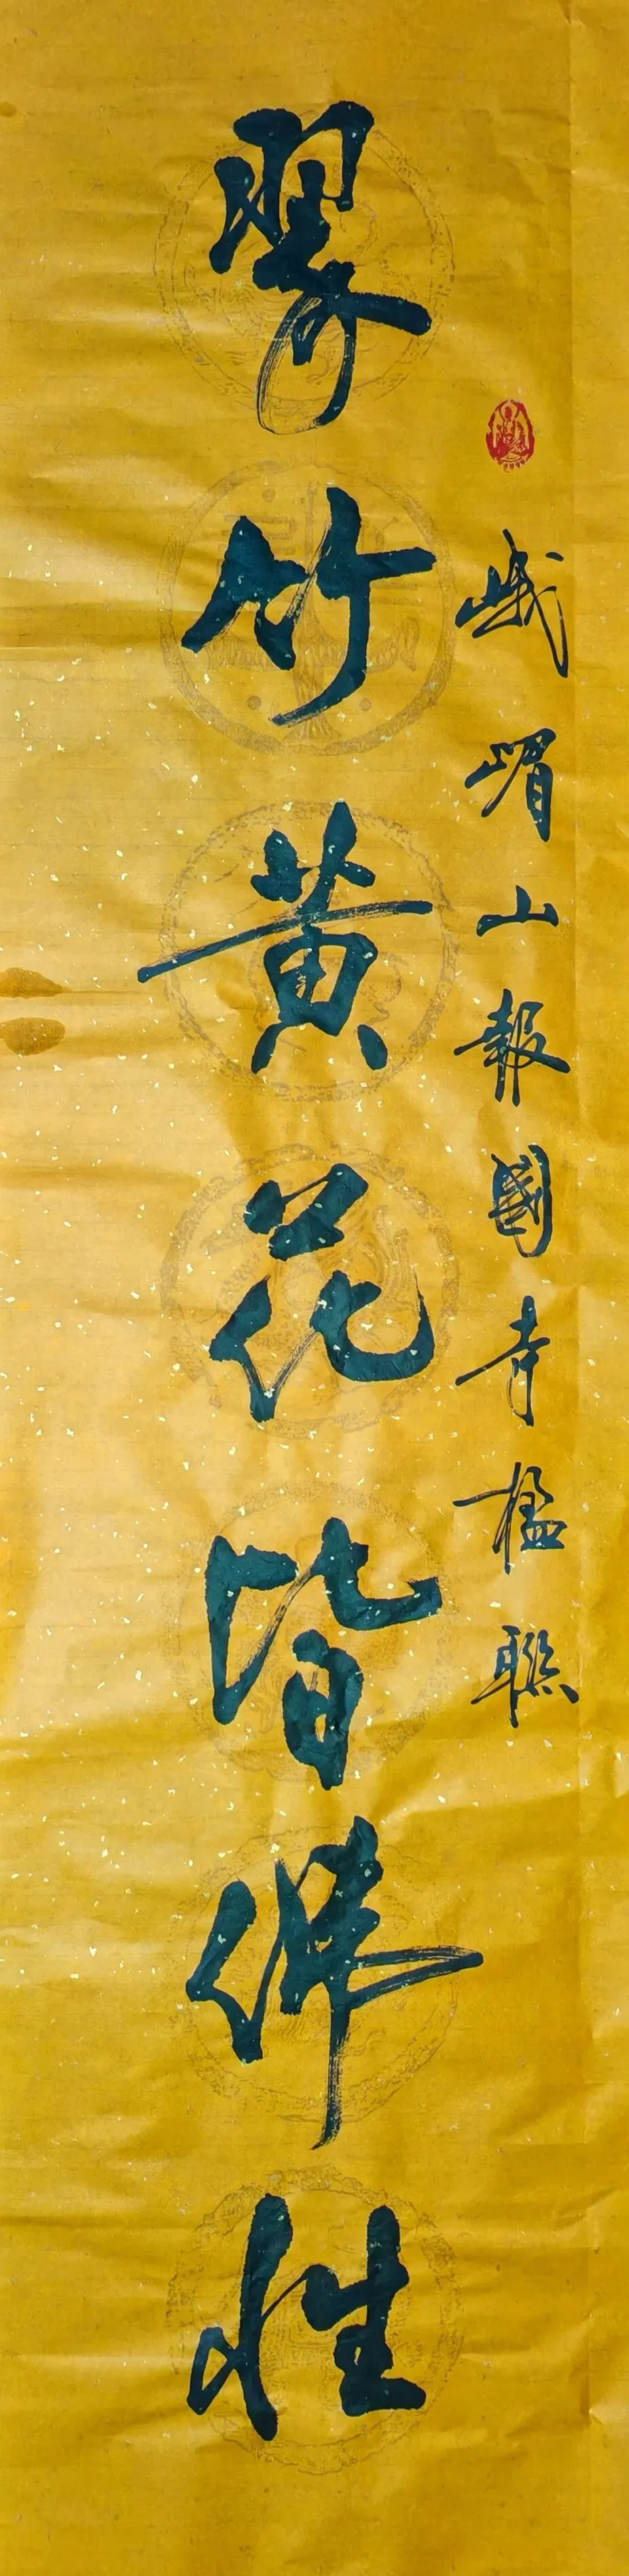 峨嵋山報國寺楹聯
翠竹黄花皆佛性